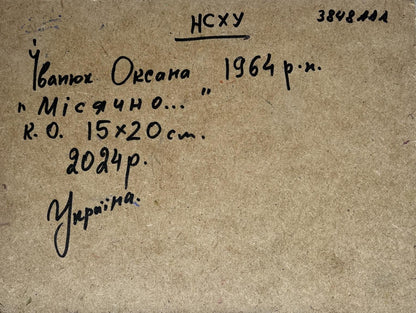 НСХУ 3848 ААА
Іванюк Оксана 1964 р.н.
"Місячно..."
к.о. 15х20 см.
2024р.
Україна.